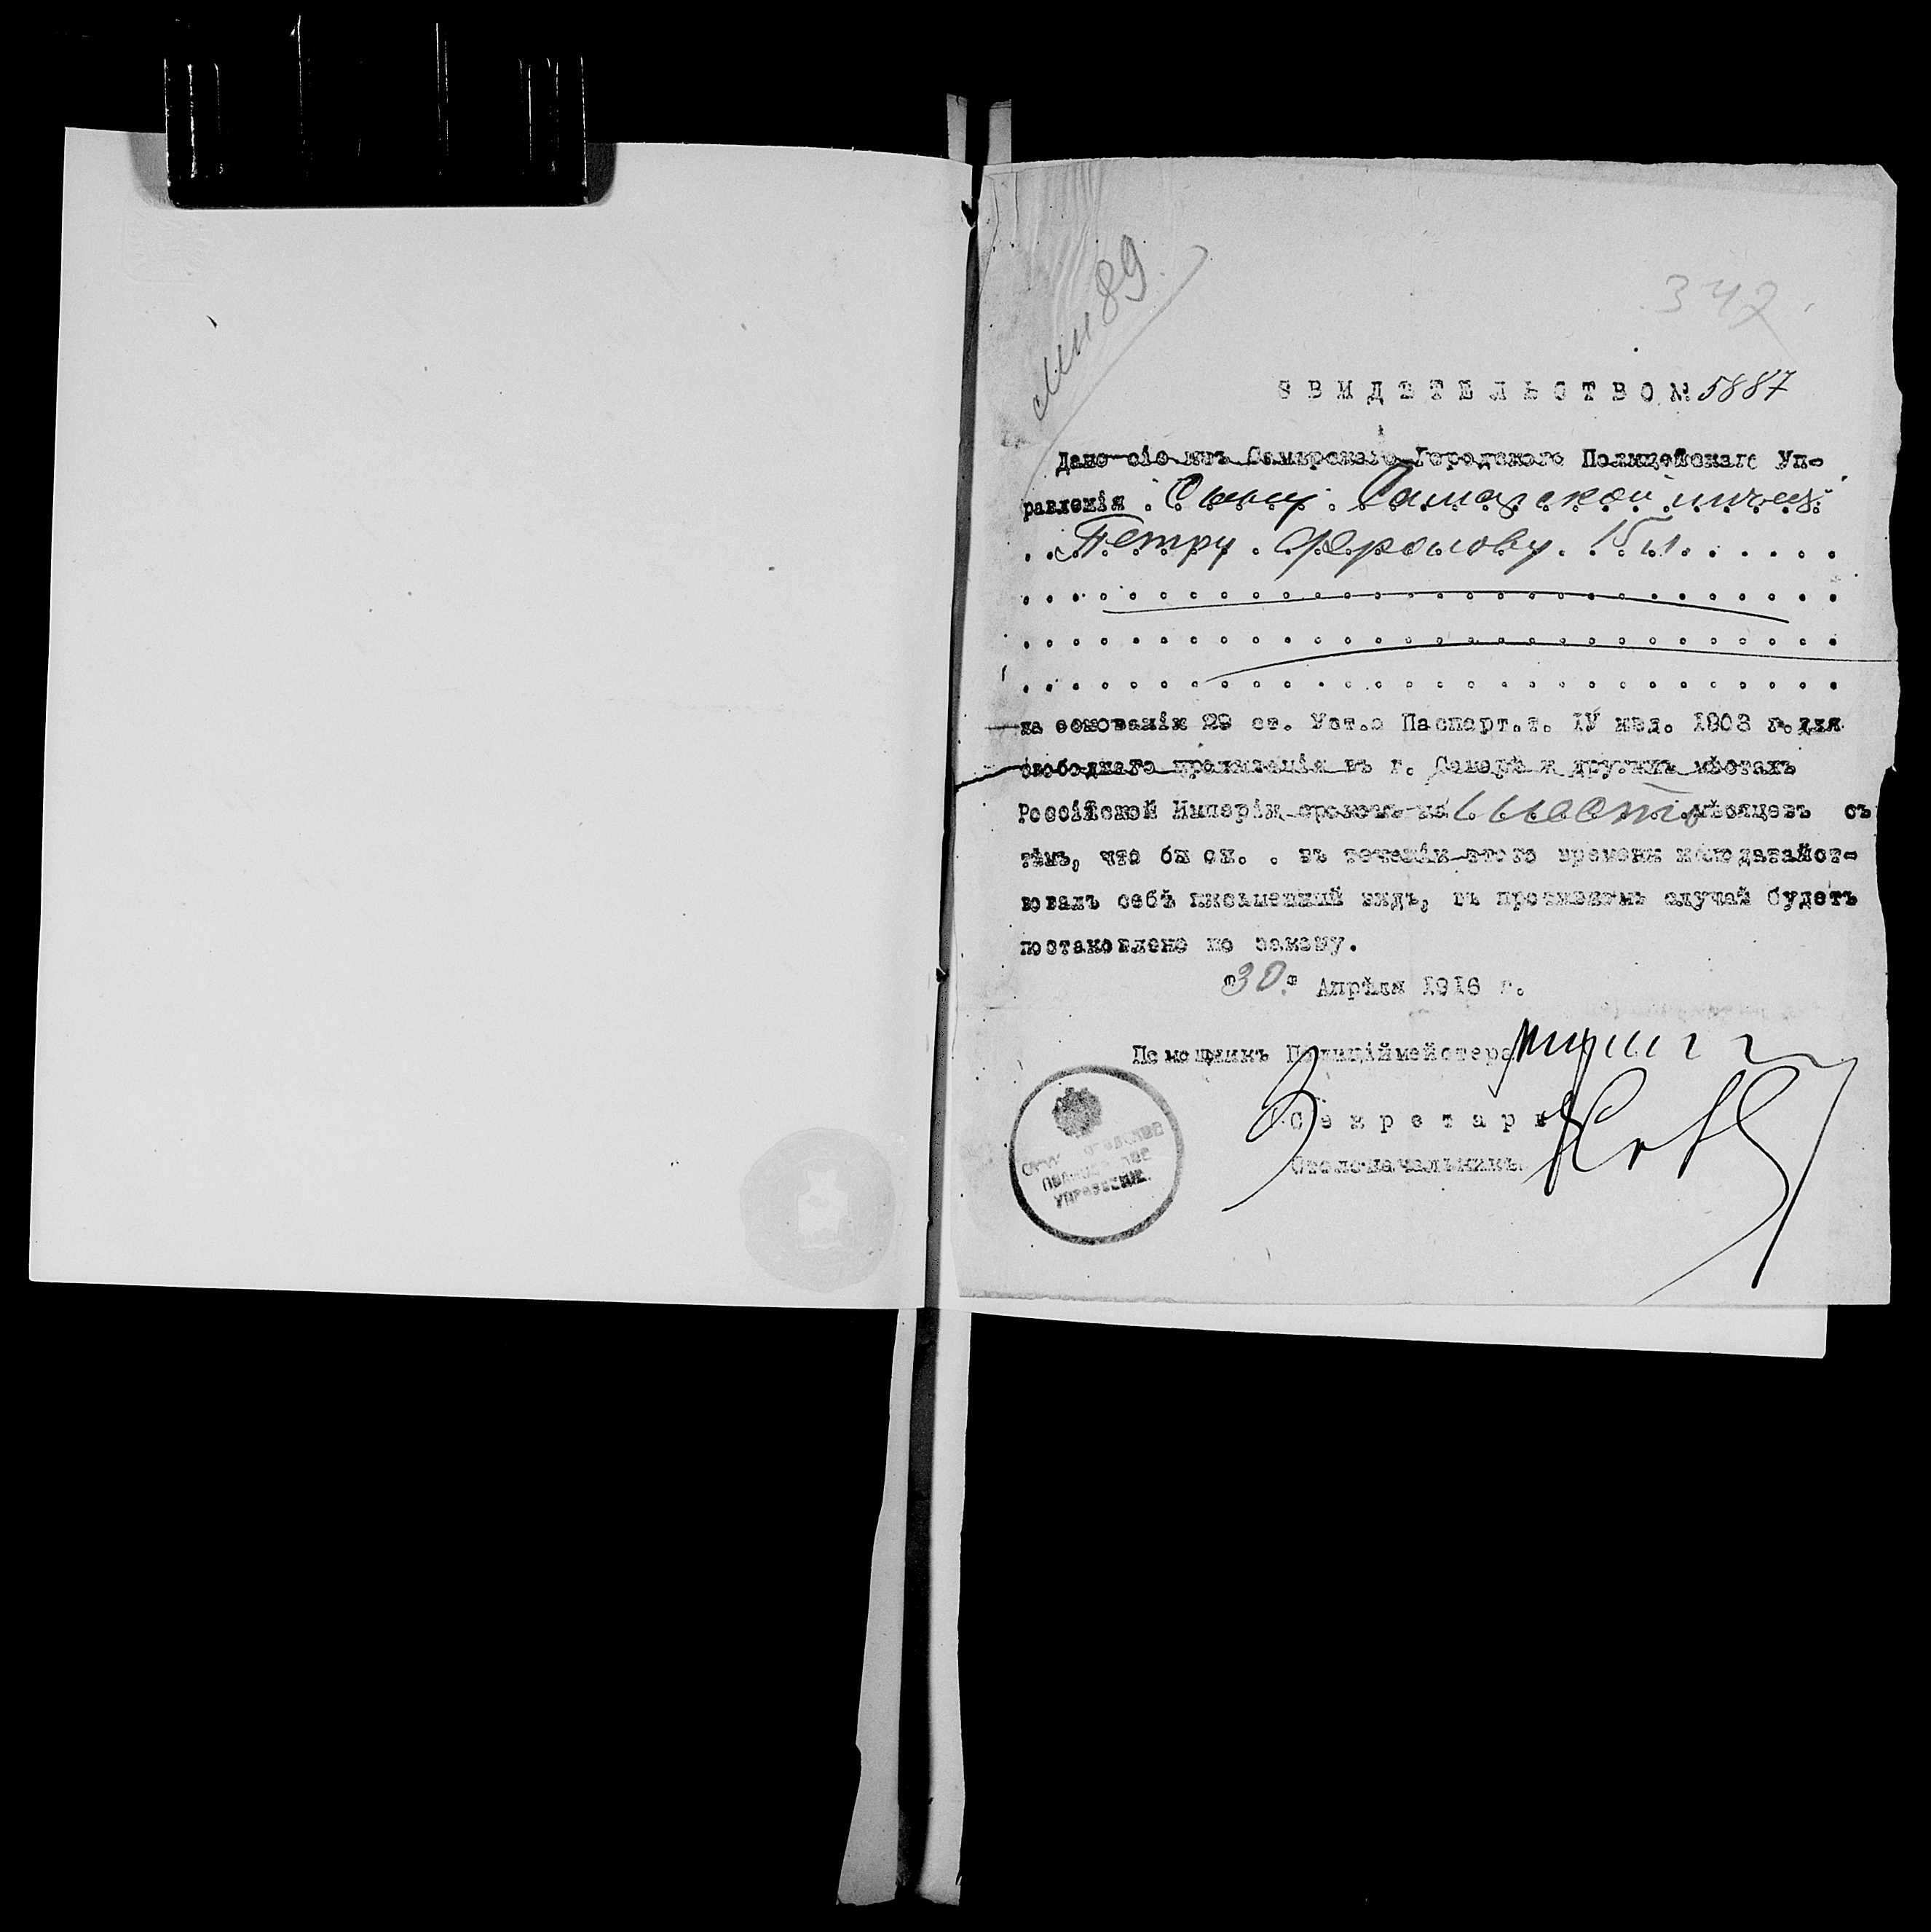 89
342
СВИДѢТЕЛЬСТВО № 5887
Дано сіе изъ Самарскаго Городского Полицейскаго Уп-
равленія Сыну Самарской
Петру 15 л.
на основаніи 29 ст. Уст.о Паспорт.т. IV изд. 1903 г. для
свободнаго проживанія въ г. Самарѣ и другихъ мѣстахъ
Россійской Имперіи срокомъ на шесть мѣсяцевъ съ
тѣмъ, что бы он. . въ теченіи этого времени исходатайст-
вовалъ себѣ письменный видъ, въ противномъ случаѣ будетъ
постановлено по закону.
"30" Апрѣля 1916 г.
Помощникъ Полиціймейстера
Секретарь
Столоначальникъ
ПОЛИЦЕЙСКОЕ
УПРАВЛЕНІЕ.